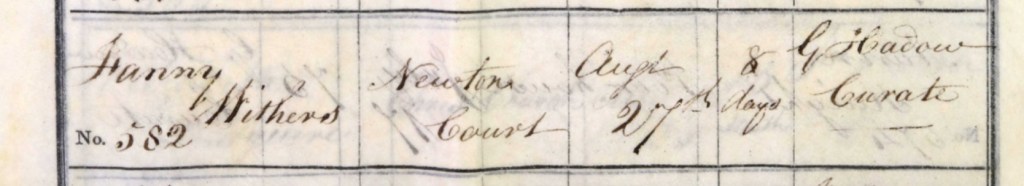 Fanny Withers
No. 582
Newton Court
Augt 27th
8 days
G Hadow
Curate